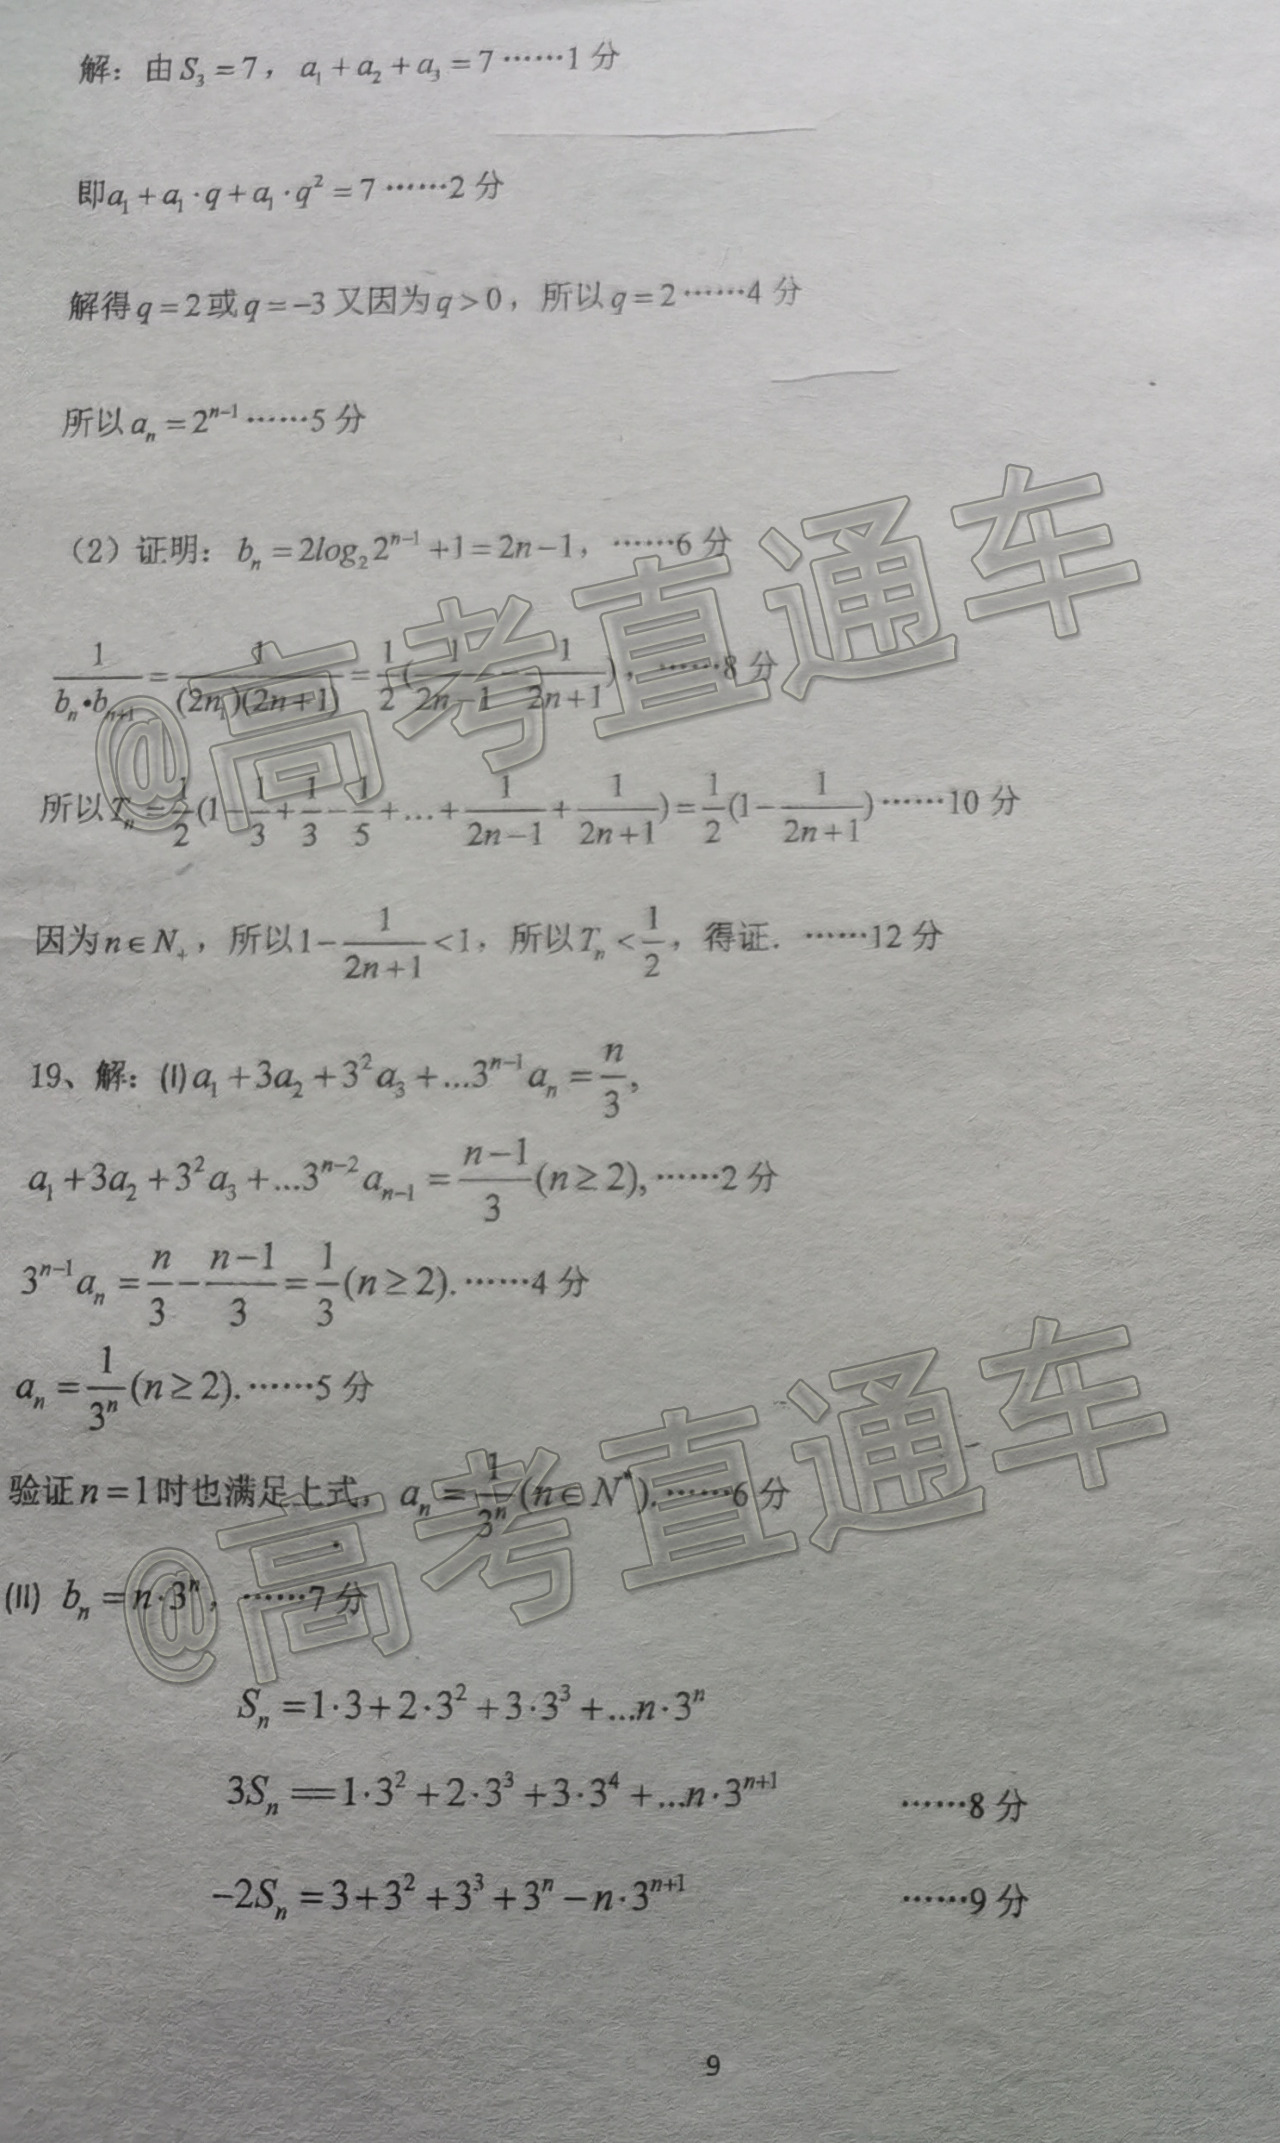 解：由S₃=7，a₁+a₂+a₃=7……1分
即a₁+a₁·q+a₁·q²=7……2分
解得q=2或q=-3又因为q>0，所以q=2……4分
所以aₙ=2ⁿ⁻¹……5分
（2）证明：bₙ=2log₂2ⁿ⁻¹+1=2n-1，……6分
1/(bₙ•bₙ₊₁)=1/((2n₁)(2n+1))=1/2(1/(2n-1)-1/(2n+1))，……8分
所以Tₙ=1/2(1-1/3+1/3-1/5+…+1/(2n-1)+1/(2n+1))=1/2(1-1/(2n+1))……10分
因为n∈N₊，所以1-1/(2n+1)<1，所以Tₙ<1/2，得证.……12分
19、解：(I)a₁+3a₂+3²a₃+…3ⁿ⁻¹aₙ=n/3,
a₁+3a₂+3²a₃+…3ⁿ⁻²aₙ₋₁=(n-1)/3(n≥2),……2分
3ⁿ⁻¹aₙ=n/3-(n-1)/3=1/3(n≥2).……4分
aₙ=1/3ⁿ(n≥2).……5分
验证n=1时也满足上式，aₙ=1/3ⁿ(n∈N*).……6分
(II) bₙ=n·3ⁿ，……7分
Sₙ=1·3+2·3²+3·3³+…n·3ⁿ
3Sₙ=1·3²+2·3³+3·3⁴+…n·3ⁿ⁺¹ ……8分
-2Sₙ=3+3²+3³+3ⁿ-n·3ⁿ⁺¹ ……9分
9
@高考直通车
@高考直通车